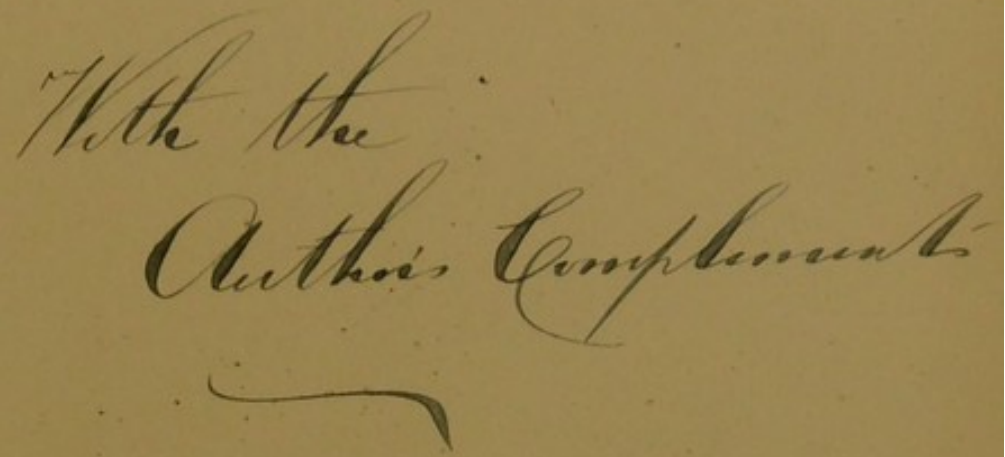 With the
Author's Compliments